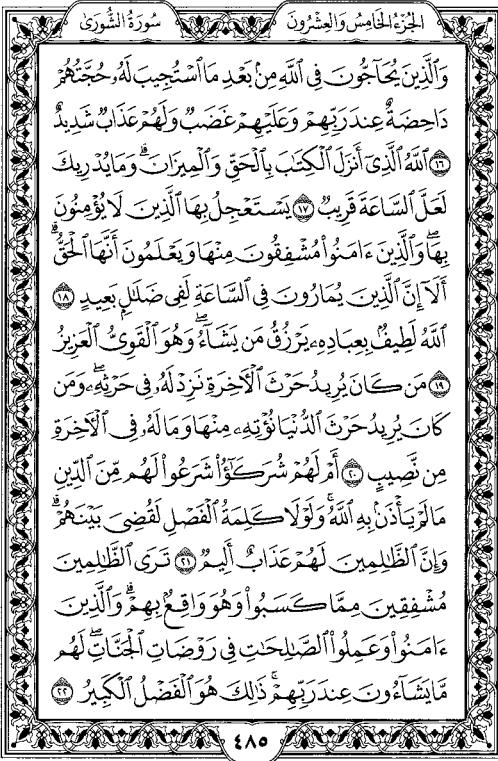 سُورَةُ الشُّورَىٰ
الجُزْءُ الخَامِسُ وَالعِشْرُونَ
وَالَّذِينَ يُحَاجُّونَ فِي اللَّهِ مِنۢ بَعْدِ مَا اسْتُجِيبَ لَهُۥ حُجَّتُهُمْ
دَاحِضَةٌ عِندَ رَبِّهِمْ وَعَلَيْهِمْ غَضَبٌ وَلَهُمْ عَذَابٌ شَدِيدٌ
١٦ اللَّهُ الَّذِىٓ أَنزَلَ الْكِتَٰبَ بِالْحَقِّ وَالْمِيزَانَ ۗ وَمَا يُدْرِيكَ
لَعَلَّ السَّاعَةَ قَرِيبٌ ١٧ يَسْتَعْجِلُ بِهَا الَّذِينَ لَا يُؤْمِنُونَ
بِهَا ۖ وَالَّذِينَ ءَامَنُوا۟ مُشْفِقُونَ مِنْهَا وَيَعْلَمُونَ أَنَّهَا الْحَقُّ ۗ
أَلَآ إِنَّ الَّذِينَ يُمَارُونَ فِى السَّاعَةِ لَفِى ضَلَٰلٍۭ بَعِيدٍ ١٨
اللَّهُ لَطِيفٌۢ بِعِبَادِهِۦ يَرْزُقُ مَن يَشَآءُ ۖ وَهُوَ الْقَوِىُّ الْعَزِيزُ
١٩ مَن كَانَ يُرِيدُ حَرْثَ الْـَٔاخِرَةِ نَزِدْ لَهُۥ فِى حَرْثِهِۦ ۖ وَمَن
كَانَ يُرِيدُ حَرْثَ الدُّنْيَا نُؤْتِهِۦ مِنْهَا وَمَا لَهُۥ فِى الْـَٔاخِرَةِ
مِن نَّصِيبٍ ٢٠ أَمْ لَهُمْ شُرَكَٰٓؤُا۟ شَرَعُوا۟ لَهُم مِّنَ الدِّينِ
مَا لَمْ يَأْذَنۢ بِهِ اللَّهُ ۚ وَلَوْلَا كَلِمَةُ الْفَصْلِ لَقُضِىَ بَيْنَهُمْ ۗ
وَإِنَّ الظَّٰلِمِينَ لَهُمْ عَذَابٌ أَلِيمٌ ٢١ تَرَى الظَّٰلِمِينَ
مُشْفِقِينَ مِمَّا كَسَبُوا۟ وَهُوَ وَاقِعٌۢ بِهِمْ ۗ وَالَّذِينَ
ءَامَنُوا۟ وَعَمِلُوا۟ الصَّٰلِحَٰتِ فِى رَوْضَاتِ الْجَنَّاتِ ۖ لَهُم
مَّا يَشَآءُونَ عِندَ رَبِّهِمْ ۚ ذَٰلِكَ هُوَ الْفَضْلُ الْكَبِيرُ ٢٢
٤٨٥